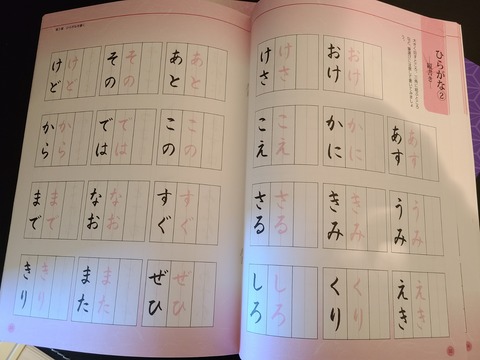 ひらがな②
縦書き
あす
あす
うみ
うみ
えき
えき
おけ
おけ
かに
かに
きみ
きみ
くり
くり
けさ
けさ
こえ
こえ
さる
さる
しろ
しろ
あと
あと
この
この
すぐ
すぐ
ぜひ
ぜひ
その
その
では
では
なお
なお
また
また
けど
けど
から
から
まで
まで
きり
きり